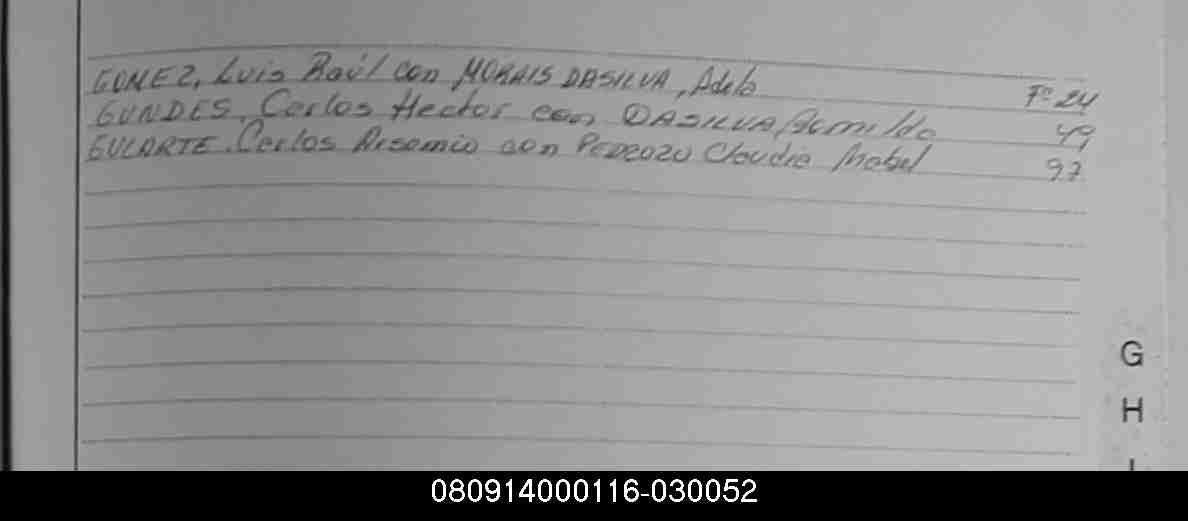 GOMEZ, Luis Raúl con MORAIS DASILVA, Adela Fº 24
GUNDES, Carlos Hector con DASILVA, Romilda 49
GULARTE. Carlos con PEDROZO Claudia Mabel 97
G
H
I
080914000116-030052